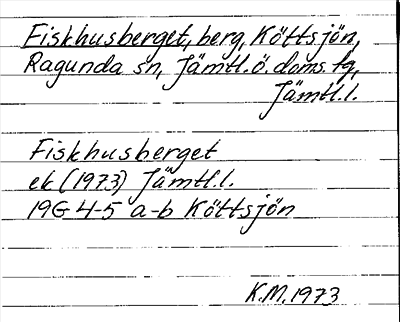 Fiskhusberget, berg, Köttsjön,
Ragunda sn, Jämtl.ö.doms.tg,
Jämtl.l.
Fiskhusberget
ek (1973) Jämtl.l.
19G 4-5 a-b Köttsjön
K.M.1973